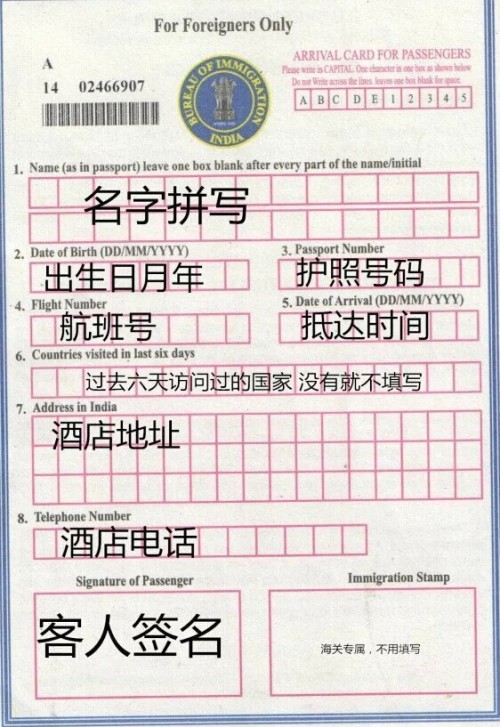 For Foreigners Only
A
14 02466907
BUREAU OF IMMIGRATION
INDIA
ARRIVAL CARD FOR PASSENGERS
Please write in CAPITAL. One character in one box as shown below
Do not Write across the lines. leaves one box blank for space.
A B C D E 1 2 3 4 5
1. Name (as in passport) leave one box blank after every part of the name/initial
名字拼写
2. Date of Birth (DD/MM/YYYY)
出生日月年
3. Passport Number
护照号码
4. Flight Number
航班号
5. Date of Arrival (DD/MM/YYYY)
抵达时间
6. Countries visited in last six days
过去六天访问过的国家 没有就不填写
7. Address in India
酒店地址
8. Telephone Number
酒店电话
Signature of Passenger
客人签名
Immigration Stamp
海关专属，不用填写